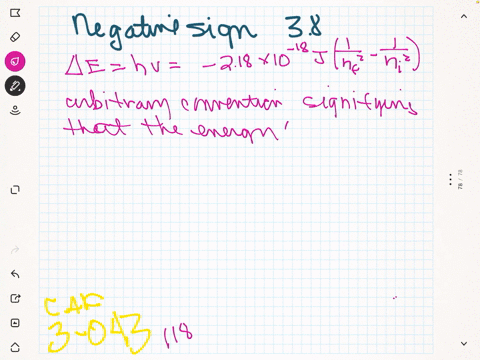 Negative sign 3.8
ΔE = hν = -2.18 × 10⁻¹⁸ J (1/n_f² - 1/n_i²)
arbitrary convention signifying
that the energy
CAK
3-043 118
78 / 78